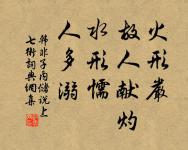 火形嚴
故人献灼
水形懦
人多溺
韩非子内储说上
七術詞典網集